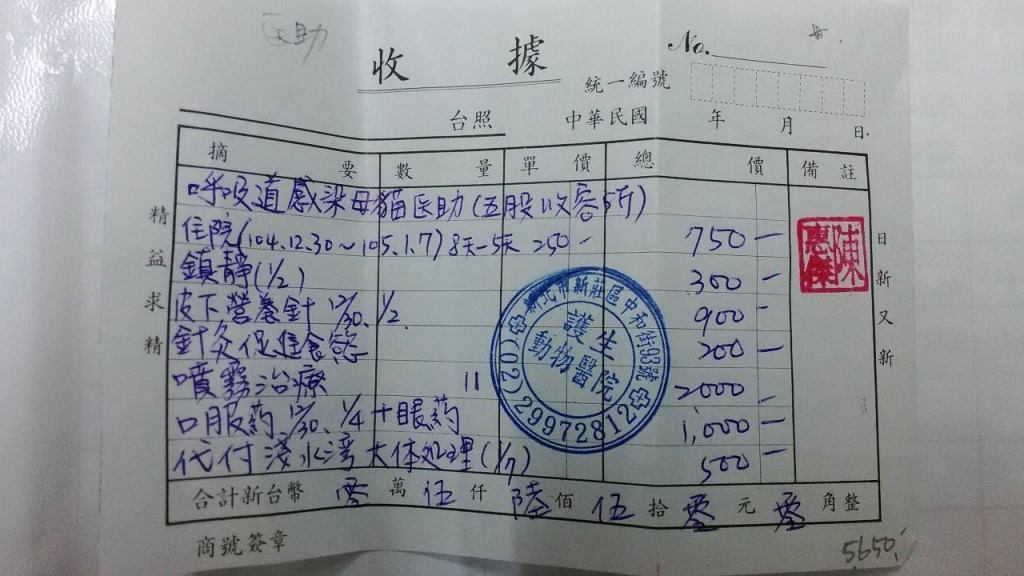 医助
收據
No.
統一編號
台照 中華民國 年 月 日
摘要 數量 單價 總價 備註
呼吸道感染母貓医助(五股收容所)
住院(104.12.30~105.1.7) 8天-5天 250- 750-
鎮靜(1/2) 300-
皮下營養針 12/30、1/2 900-
針灸促進食慾 200-
噴霧治療 11 2000-
口服葯 12/30、1/4 +眼葯 1,000-
代付淺水灣大体処理(1/7) 500-
合計新台幣 零萬伍仟陸佰伍拾零元零角整
商號簽章
5650.
精益求精
日新又新
陳
新北市新莊區中和街93號
護生
動物醫院
(02)29972812